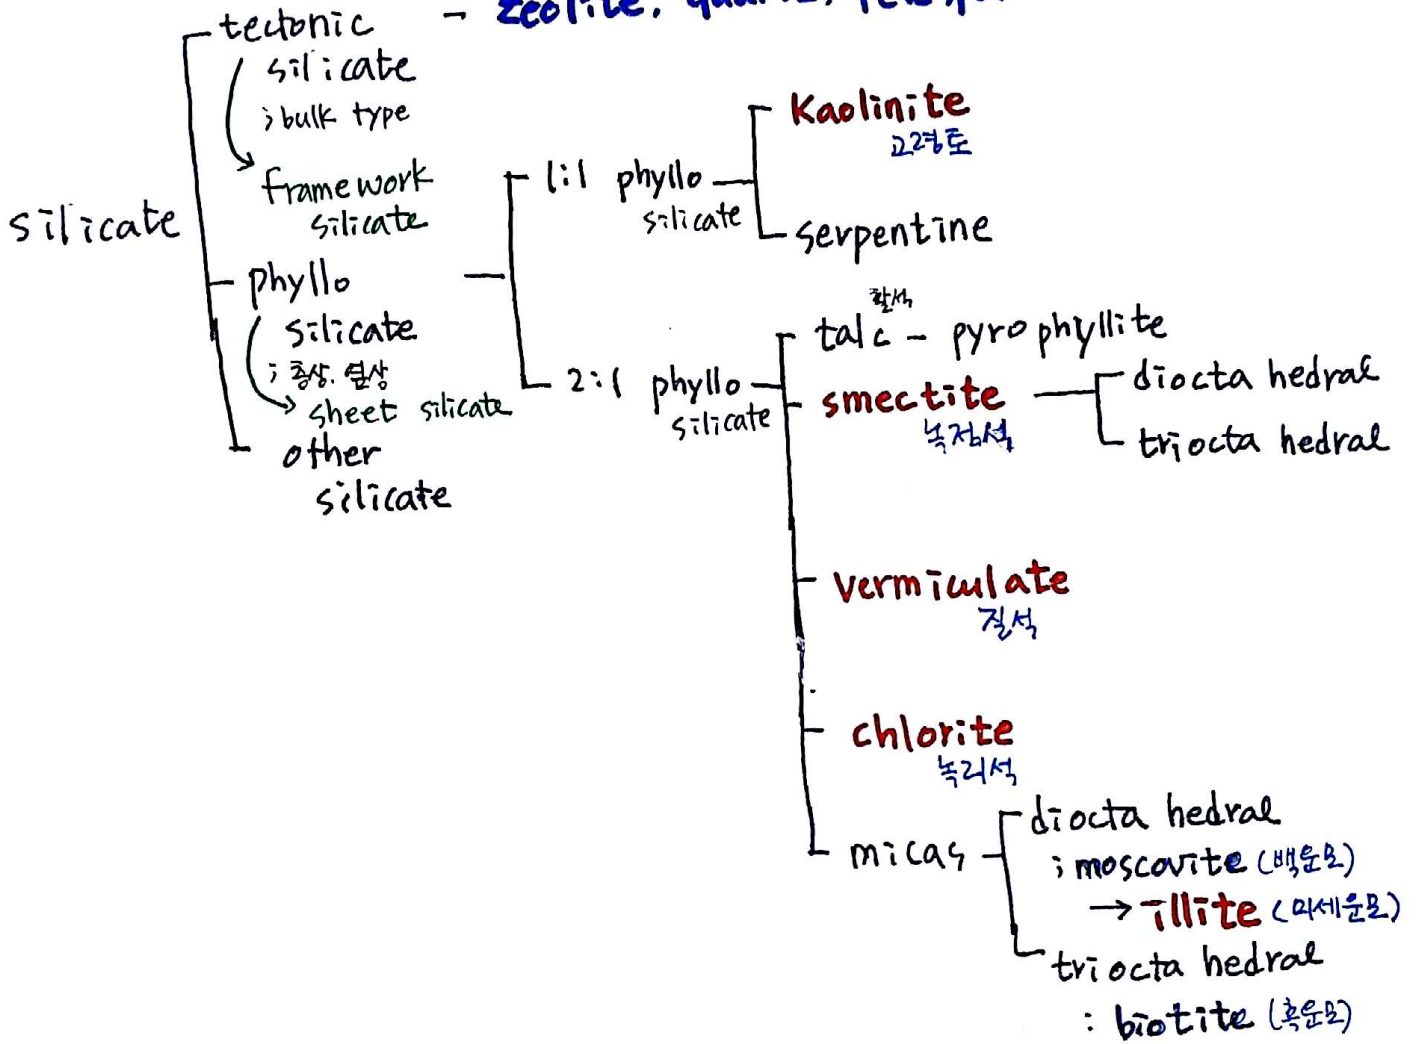 tectonic - zeolite, quartz,
silicate
; bulk type
framework
silicate
silicate
phyllo
silicate
; 층상, 엽상
sheet silicate
other
silicate
1:1 phyllo
silicate
Kaolinite
고령토
serpentine
2:1 phyllo
silicate
활석
talc - pyrophyllite
smectite
녹점석
diocta hedral
triocta hedral
vermiculate
질석
chlorite
녹리석
micas
diocta hedral
; moscovite (백운모)
→ illite (미세운모)
triocta hedral
: biotite (흑운모)